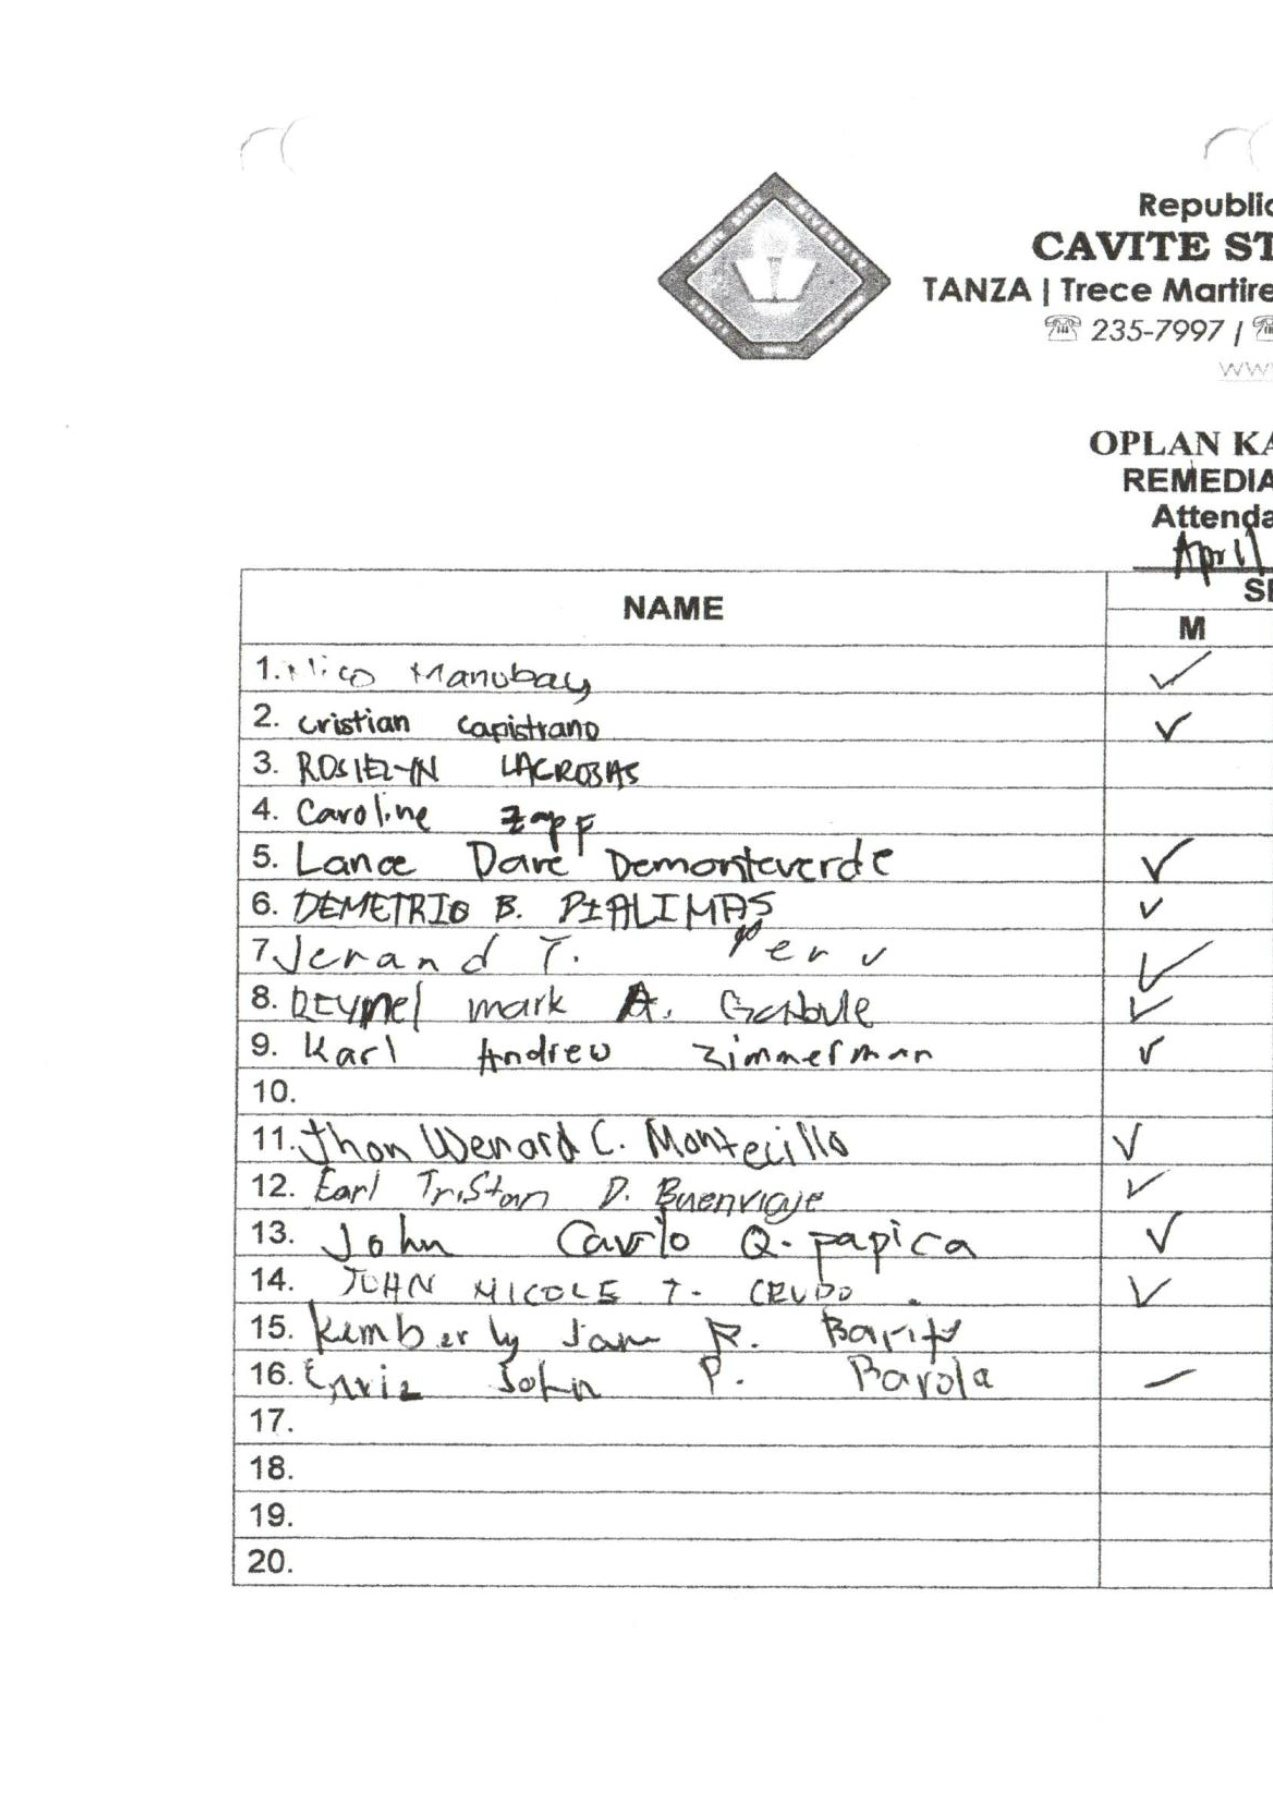 CAVITE STATE UNIVERSITY
Republic
CAVITE ST
TANZA | Trece Martire
☏ 235-7997 / ☏
ww
OPLAN KA
REMEDIA
Attenda
April
NAME
SE
M
1. Nico Manubay ✓
2. Cristian Capistrano ✓
3. ROSIELYN LACROSAS
4. Caroline Zapf
5. Lance Dave Demonteverde ✓
6. DEMETRIO B. DIALIMAS ✓
7. Jerand T. ✓
8. Reymel mark A. Garbule ✓
9. Karl Andrew Zimmerman ✓
10.
11. Jhon Wenard C. Montecillo ✓
12. Earl Tristan D. Buenviaje ✓
13. John Carlo Q. papica ✓
14. JOHN NICOLE T. CRUDO. ✓
15. Kimberly Jane R.
16. John P. Barola –
17.
18.
19.
20.